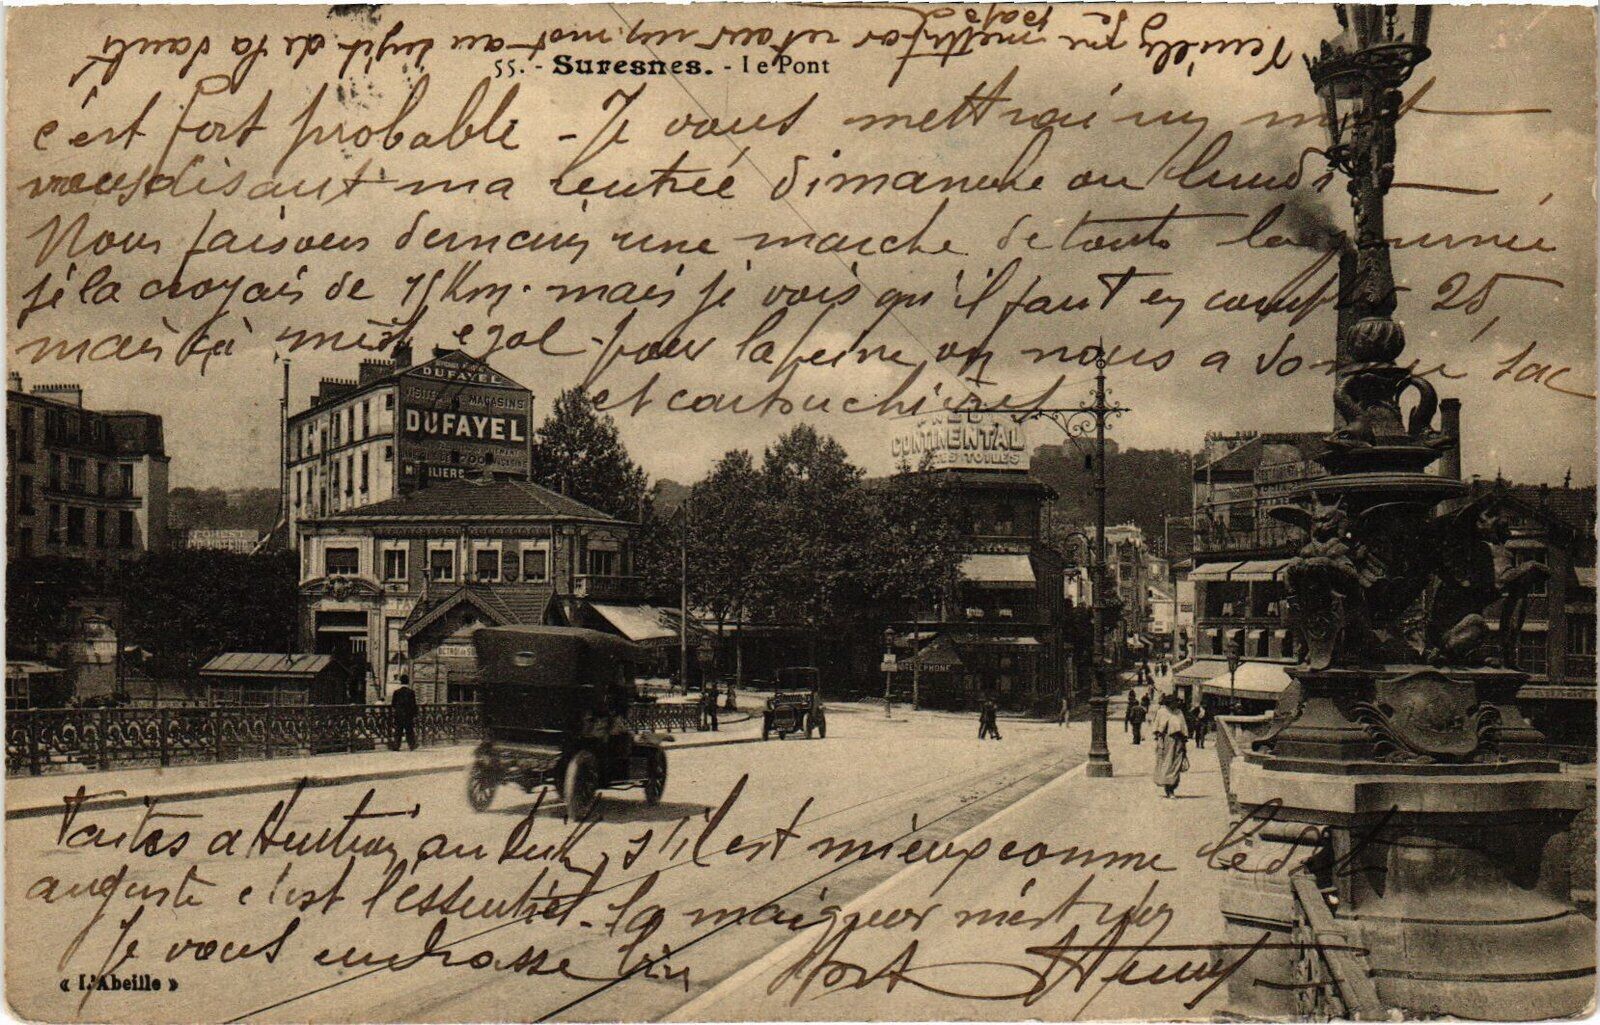 Veuillez me mettre par retour un mot au sujet de la santé
55. - Suresnes. - Le Pont
c'est fort probable - Je vous mettrai un mot
vous disant ma rentrée dimanche ou lundi
Nous faisons demain une marche de toute la journée
je la croyais de 15 Km. mais je vois qu'il faut en compter 25,
mais cà m'est egal - pour la peine on nous a donné sac
et cartouchières
DUFAYEL
MAGASINS
DUFAYEL
CONTINENTAL
TELEPHONE
Faites attention au s'il est mieux comme le dit
auguste c'est l'essentiel - la maigreur n'est rien
Je vous embrasse bien fort Henry
« L'Abeille »